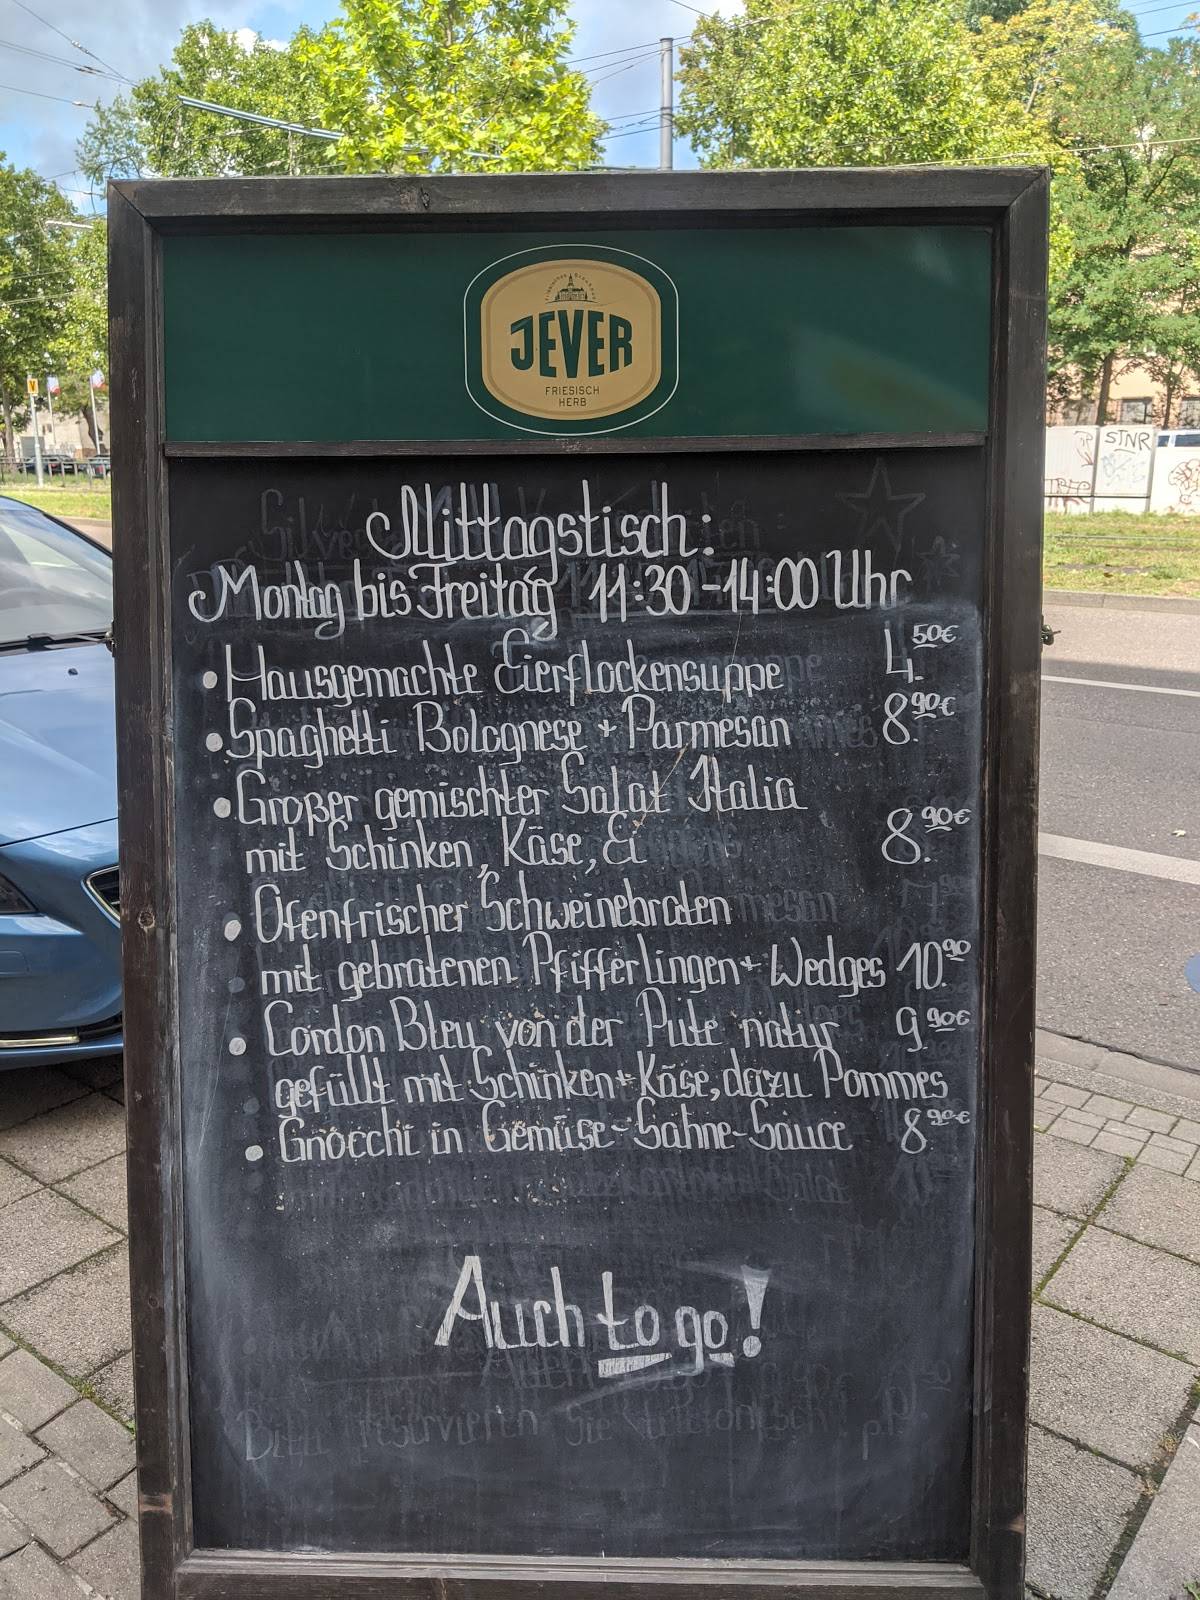 JEVER
FRIESISCH
HERB
STNR
Mittagstisch:
Montag bis Freitag 11:30-14:00 Uhr
• Hausgemachte Eierflockensuppe 4.50€
• Spaghetti Bolognese + Parmesan 8.90€
• Großer gemischter Salat Italia
mit Schinken, Käse, Ei 8.90€
• Ofenfrischer Schweinebraten
mit gebratenen Pfifferlingen + Wedges 10.90
• Cordon Bleu von der Pute natur 9.90€
gefüllt mit Schinken + Käse, dazu Pommes
• Gnocchi in Gemüse-Sahne-Sauce 8.90€
Auch to go!
Bitte reservieren Sie telefonisch!